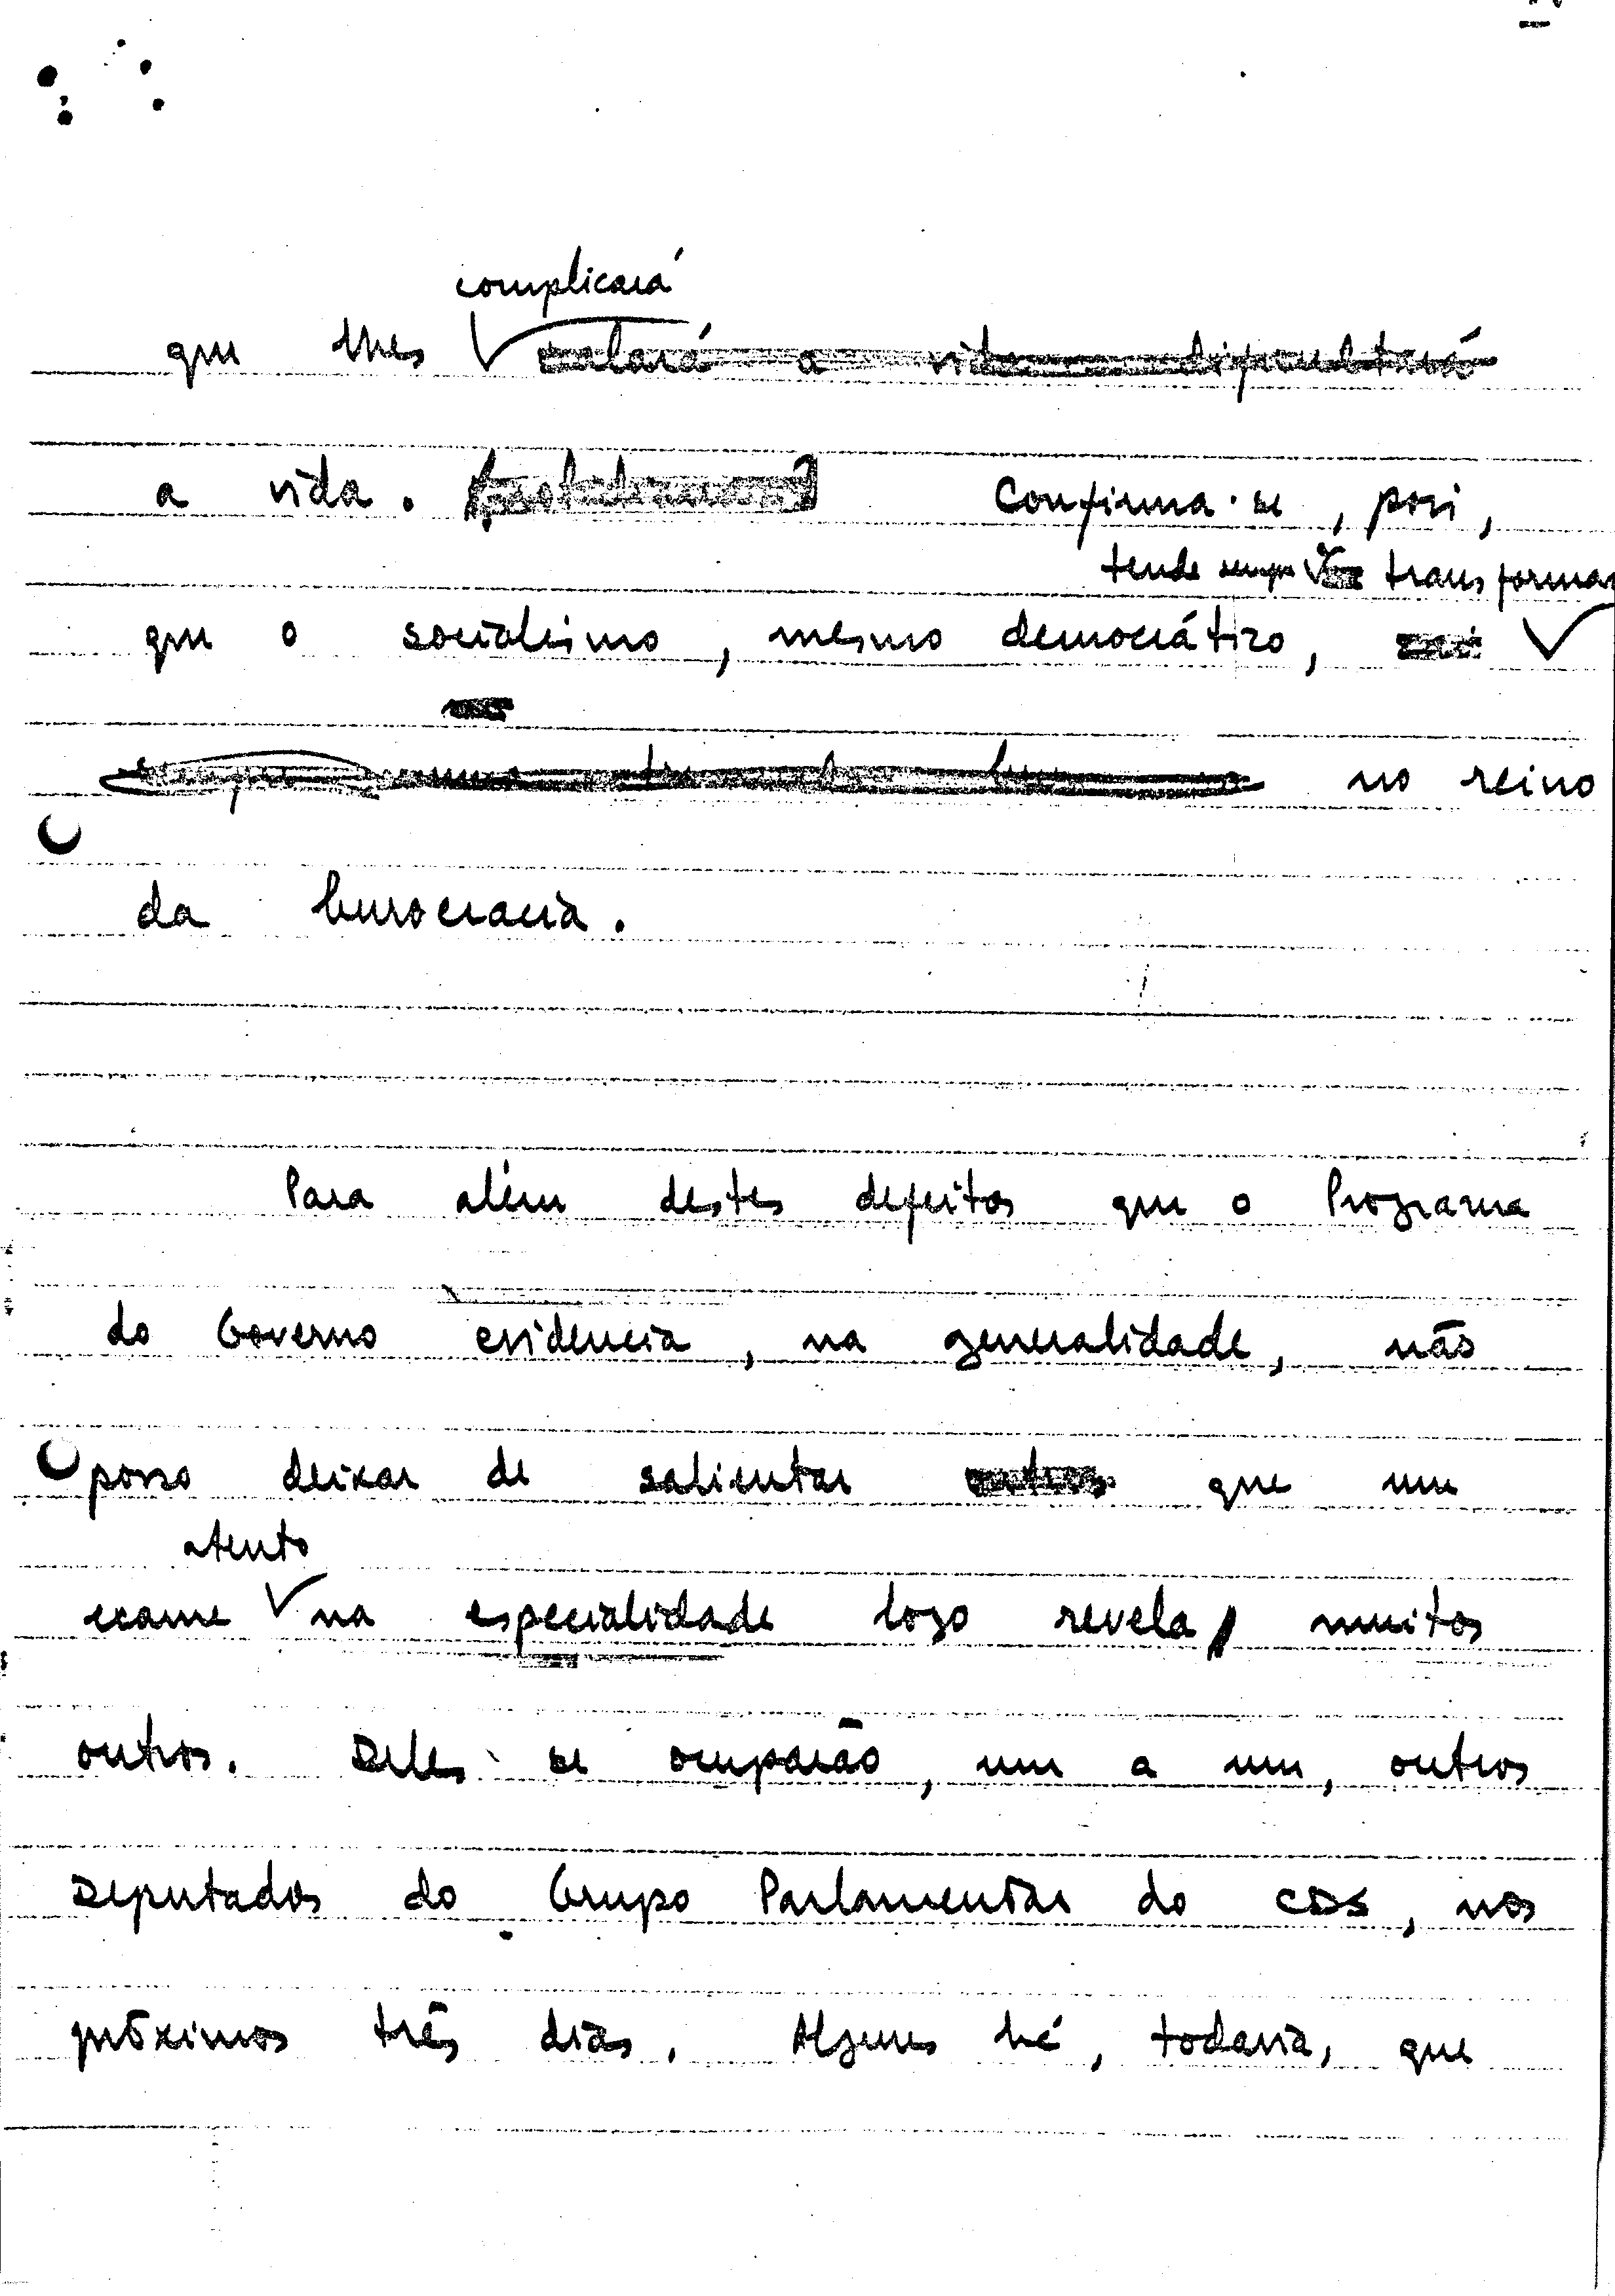 complicará
que lhes
a vida. Confirma-se, pois,
tende sempre a transformar
que o socialismo, mesmo democrático,
no reino
da burocracia.
Para além destes defeitos que o Programa
do Governo evidencia, na generalidade, não
posso deixar de salientar que um
atento
exame na especialidade logo revela muitos
outros. Deles se ocuparão, um a um, outros
Deputados do Grupo Parlamentar do CDS, nos
próximos três dias. Alguns há, todavia, que